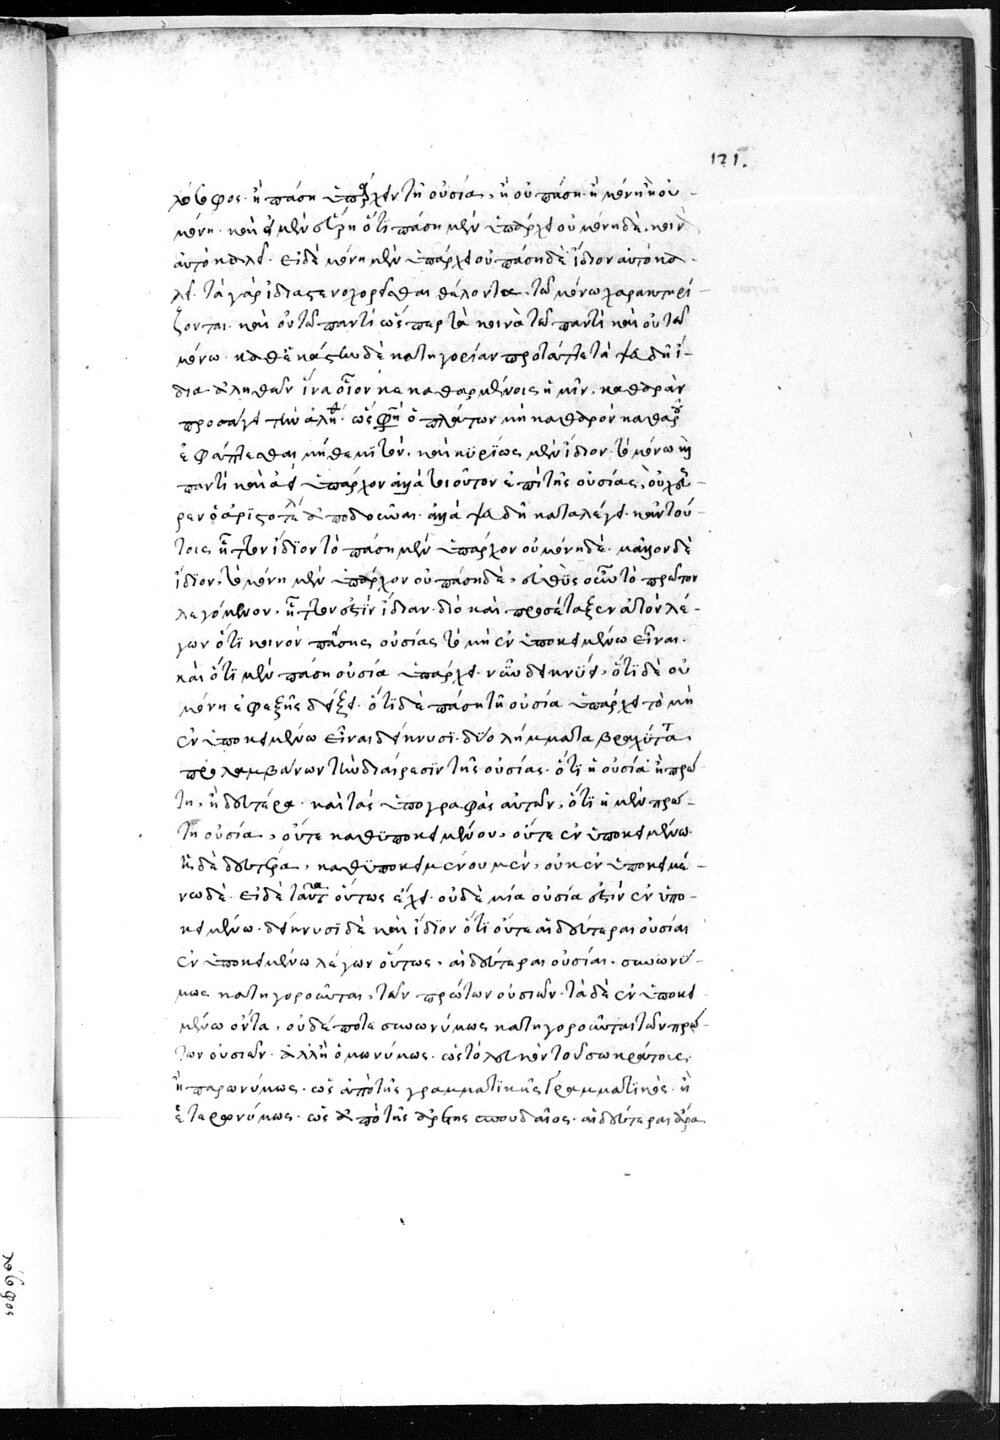 121.
λόσοφος· ἢ πάση ὑπάρχειν τῆ οὐσία, ἢ οὐ πάση· ἢ μόνη ἢ οὐ
μόνη· καὶ εἰ μὲν εὕρη ὅτι πάση μὲν ὑπάρχει οὐ μόνη δὲ, κοινὸν
αὐτὸ καλεῖ· εἰ δὲ μόνη μὲν ὑπάρχει οὐ πάση δὲ ἴδιον αὐτὸ κα
λεῖ· τὰ γὰρ ἰδίας εὐμοιρεῖσθαι θέλοντα, τῶ μόνω χαρακτηρί
ζονται· καὶ οὐ τῶ παντί ὥσπερ τὰ κοινὰ τῶ παντὶ καὶ οὐ τῶ
μόνω· καθ' ἑκάστην δὲ κατηγορίαν προτάττει τὰ ψευδῆ ἴ
δια ἀληθῶν ἵνα οἷον κεκαθαρμένοις ἡμῖν, καθαρὰν
προσαγει τὴν ἀλήθειαν· ὥς φησι ὁ πλάτων μὴ καθαρὸν καθαροῦ
ἐφάπτεσθαι μὴ θεμιτόν, καὶ κυρίως μὲν ἴδιον· τὸ μόνω καὶ
παντὶ καὶ ἀεὶ ὑπάρχον ἀλλὰ τοιοῦτον ἐπὶ τῆς οὐσίας, οὐχ εὗ
ρεν ὁ ἀριστοτέλης ἀποδοῦναι· ἀλλὰ ψευδῆ καταλέγει· κἀν τού
τοις ἧττον ἴδιον τὸ πάση μὲν ὑπάρχον οὐ μόνη δὲ· μᾶλλον δὲ
ἴδιον, τὸ μόνη μὲν ὑπάρχον οὐ πάση δὲ, εὐθὺς οὖν τὸ πρῶτον
λεγόμενον, ἧττον ἐστὶν ἴδιον· διὸ καὶ προσέταξεν αὐτὸν λέ
γων ὅτι κοινὸν πάσης οὐσίας τὸ μὴ ἐν ὑποκειμένω εἶναι.
καὶ ὅτι μὲν πάση οὐσία ὑπάρχει· νῦν δεικνύει, ὅτι δὲ οὐ
μόνη ἐφεξῆς δείξει· ὅτι δὲ πάση τῆ οὐσία ὑπάρχει τὸ μὴ
ἐν ὑποκειμένω εἶναι δείκνυσι· δύο λήμματα βραχύτατα,
προλαμβάνων τὴν διαίρεσιν τῆς οὐσίας· ὅτι ἡ οὐσία ἢ πρώ
τη, ἢ δευτέρα· καὶ τὰς ὑπογραφὰς αὐτῶν, ὅτι ἡ μὲν πρώ
τη οὐσία, οὔτε καθ' ὑποκειμένου, οὔτε ἐν ὑποκειμένω.
ἡ δὲ δευτέρα, καθ' ὑποκειμένου μὲν, οὐκ ἐν ὑποκειμέ
νω δὲ· εἰ δὲ ταῦτα οὕτως ἔχει· οὐδὲ μία οὐσία ἐστὶν ἐν ὑπο
κειμένω· δείκνυσι δὲ καὶ ἴδιον ὅτι οὔτε αἱ δεύτεραι οὐσίαι
ἐν ὑποκειμένω λέγων οὕτως, αἱ δεύτεραι οὐσίαι, συνωνύ
μως κατηγοροῦνται, τῶν πρώτων οὐσιῶν· τὰ δὲ ἐν ὑποκει
μένω ὄντα, οὐδέποτε συνωνύμως κατηγοροῦνται τῶν πρώ
των οὐσιῶν· ἀλλ' ἢ ὁμωνύμως· ὡς τὸ λευκὸν τοῦ σωκράτους,
ἢ παρωνύμως· ὡς ἀπὸ τῆς γραμματικῆς γραμματικός· ἢ
ἑτερωνύμως· ὡς ἀπὸ τῆς ἀρετῆς σπουδαῖος· αἱ δεύτεραι ἄρα
λόσοφος